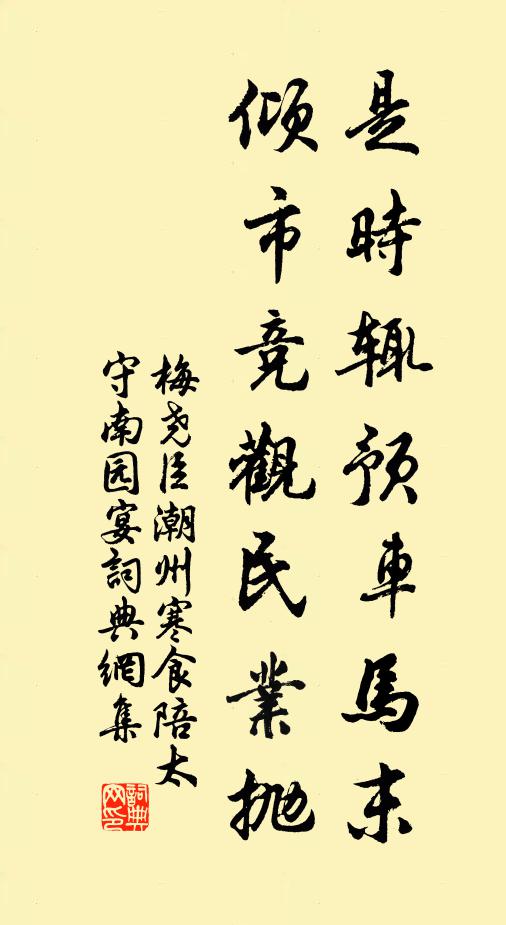 是時輒預車馬末
傾市竞觀民業抛
梅尧臣潮州寒食陪太
守南园宴詞典網集
詞典网印